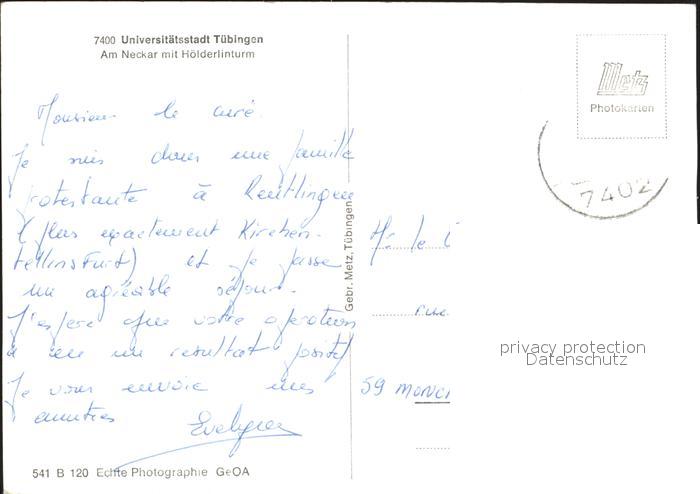 7400 Universitätsstadt Tübingen
Am Neckar mit Hölderlinturm
Metz
Photokarten
7402
Monsieur le curé.
Je suis dans une famille
protestante à Reutlingen
(plus exactement Kirchen-
tellinsfurt) et je passe
un agréable séjour.
J'espère que votre opération
a eu un résultat positif
Je vous envoie mes
amitiés
Evelyne
Gebr. Metz, Tübingen
M. le C
rue
59 Monc
privacy protection
Datenschutz
541 B 120 Echte Photographie GeOA